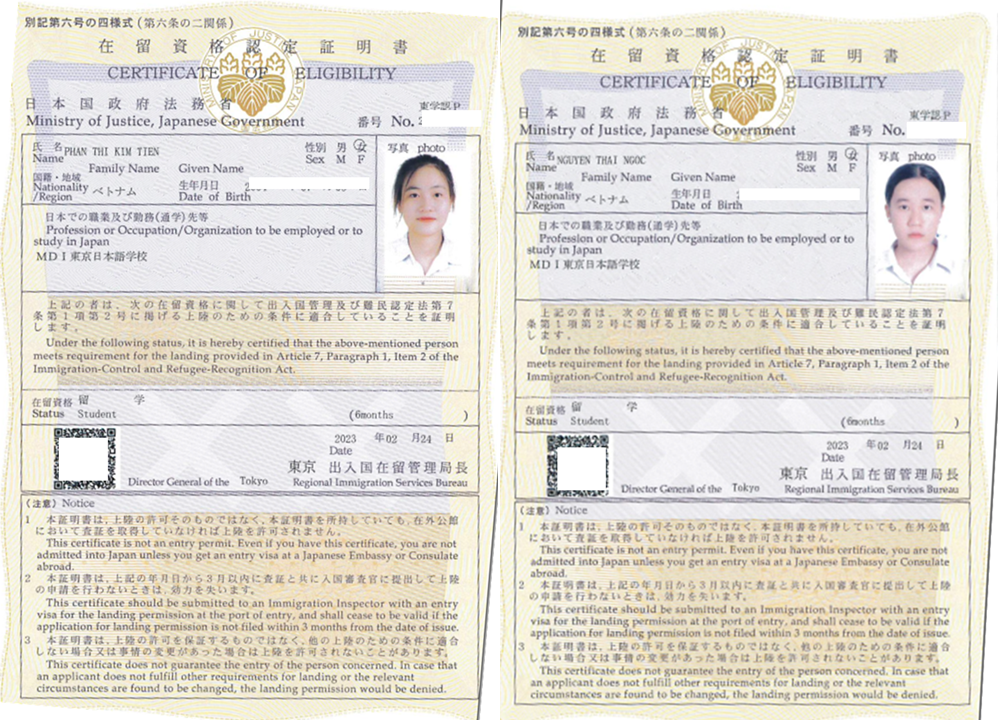 別記第六号の四様式(第六条の二関係)
在留資格認定証明書
CERTIFICATE OF ELIGIBILITY
日本国政府法務省
東学認P
Ministry of Justice, Japanese Government
番号 No.
氏名 PHAN THI KIM TIEN
Name
Family Name Given Name
性別 男 女
Sex M F
写真 photo
国籍・地域
Nationality ベトナム
/Region
生年月日
Date of Birth
日本での職業及び勤務(通学)先等
Profession or Occupation/Organization to be employed or to
study in Japan
MDI東京日本語学校
上記の者は、次の在留資格に関して出入国管理及び難民認定法第7
条第1項第2号に掲げる上陸のための条件に適合していることを証明
します。
Under the following status, it is hereby certified that the above-mentioned person
meets requirement for the landing provided in Article 7, Paragraph 1, Item 2 of the
Immigration-Control and Refugee-Recognition Act.
在留資格 留 学
Status Student (6months )
2023 年02 月24 日
Date
東京 出入国在留管理局長
Director General of the Tokyo Regional Immigration Services Bureau
(注意) Notice
1 本証明書は、上陸の許可そのものではなく、本証明書を所持していても、在外公館
において査証を取得していなければ上陸を許可されません。
This certificate is not an entry permit. Even if you have this certificate, you are not
admitted into Japan unless you get an entry visa at a Japanese Embassy or Consulate
abroad.
2 本証明書は、上記の年月日から3月以内に査証と共に入国審査官に提出して上陸
の申請を行わないときは、効力を失います。
This certificate should be submitted to an Immigration Inspector with an entry
visa for the landing permission at the port of entry, and shall cease to be valid if the
application for landing permission is not filed within 3 months from the date of issue.
3 本証明書は、上陸の許可を保証するものではなく、他の上陸のための条件に適合
しない場合又は事情の変更があった場合は上陸を許可されないことがあります。
This certificate does not guarantee the entry of the person concerned. In case that
an applicant does not fulfill other requirements for landing or the relevant
circumstances are found to be changed, the landing permission would be denied.
別記第六号の四様式(第六条の二関係)
在留資格認定証明書
CERTIFICATE OF ELIGIBILITY
日本国政府法務省
東学認P
Ministry of Justice, Japanese Government
番号 No.
氏名 NGUYEN THAI NGOC
Name
Family Name Given Name
性別 男 女
Sex M F
写真 photo
国籍・地域
Nationality ベトナム
/Region
生年月日
Date of Birth
日本での職業及び勤務(通学)先等
Profession or Occupation/Organization to be employed or to
study in Japan
MDI東京日本語学校
上記の者は、次の在留資格に関して出入国管理及び難民認定法第7
条第1項第2号に掲げる上陸のための条件に適合していることを証明
します。
Under the following status, it is hereby certified that the above-mentioned person
meets requirement for the landing provided in Article 7, Paragraph 1, Item 2 of the
Immigration-Control and Refugee-Recognition Act.
在留資格 留 学
Status Student (6months )
2023 年02 月24 日
Date
東京 出入国在留管理局長
Director General of the Tokyo Regional Immigration Services Bureau
(注意) Notice
1 本証明書は、上陸の許可そのものではなく、本証明書を所持していても、在外公館
において査証を取得していなければ上陸を許可されません。
This certificate is not an entry permit. Even if you have this certificate, you are not
admitted into Japan unless you get an entry visa at a Japanese Embassy or Consulate
abroad.
2 本証明書は、上記の年月日から3月以内に査証と共に入国審査官に提出して上陸
の申請を行わないときは、効力を失います。
This certificate should be submitted to an Immigration Inspector with an entry
visa for the landing permission at the port of entry, and shall cease to be valid if the
application for landing permission is not filed within 3 months from the date of issue.
3 本証明書は、上陸の許可を保証するものではなく、他の上陸のための条件に適合
しない場合又は事情の変更があった場合は上陸を許可されないことがあります。
This certificate does not guarantee the entry of the person concerned. In case that
an applicant does not fulfill other requirements for landing or the relevant
circumstances are found to be changed, the landing permission would be denied.